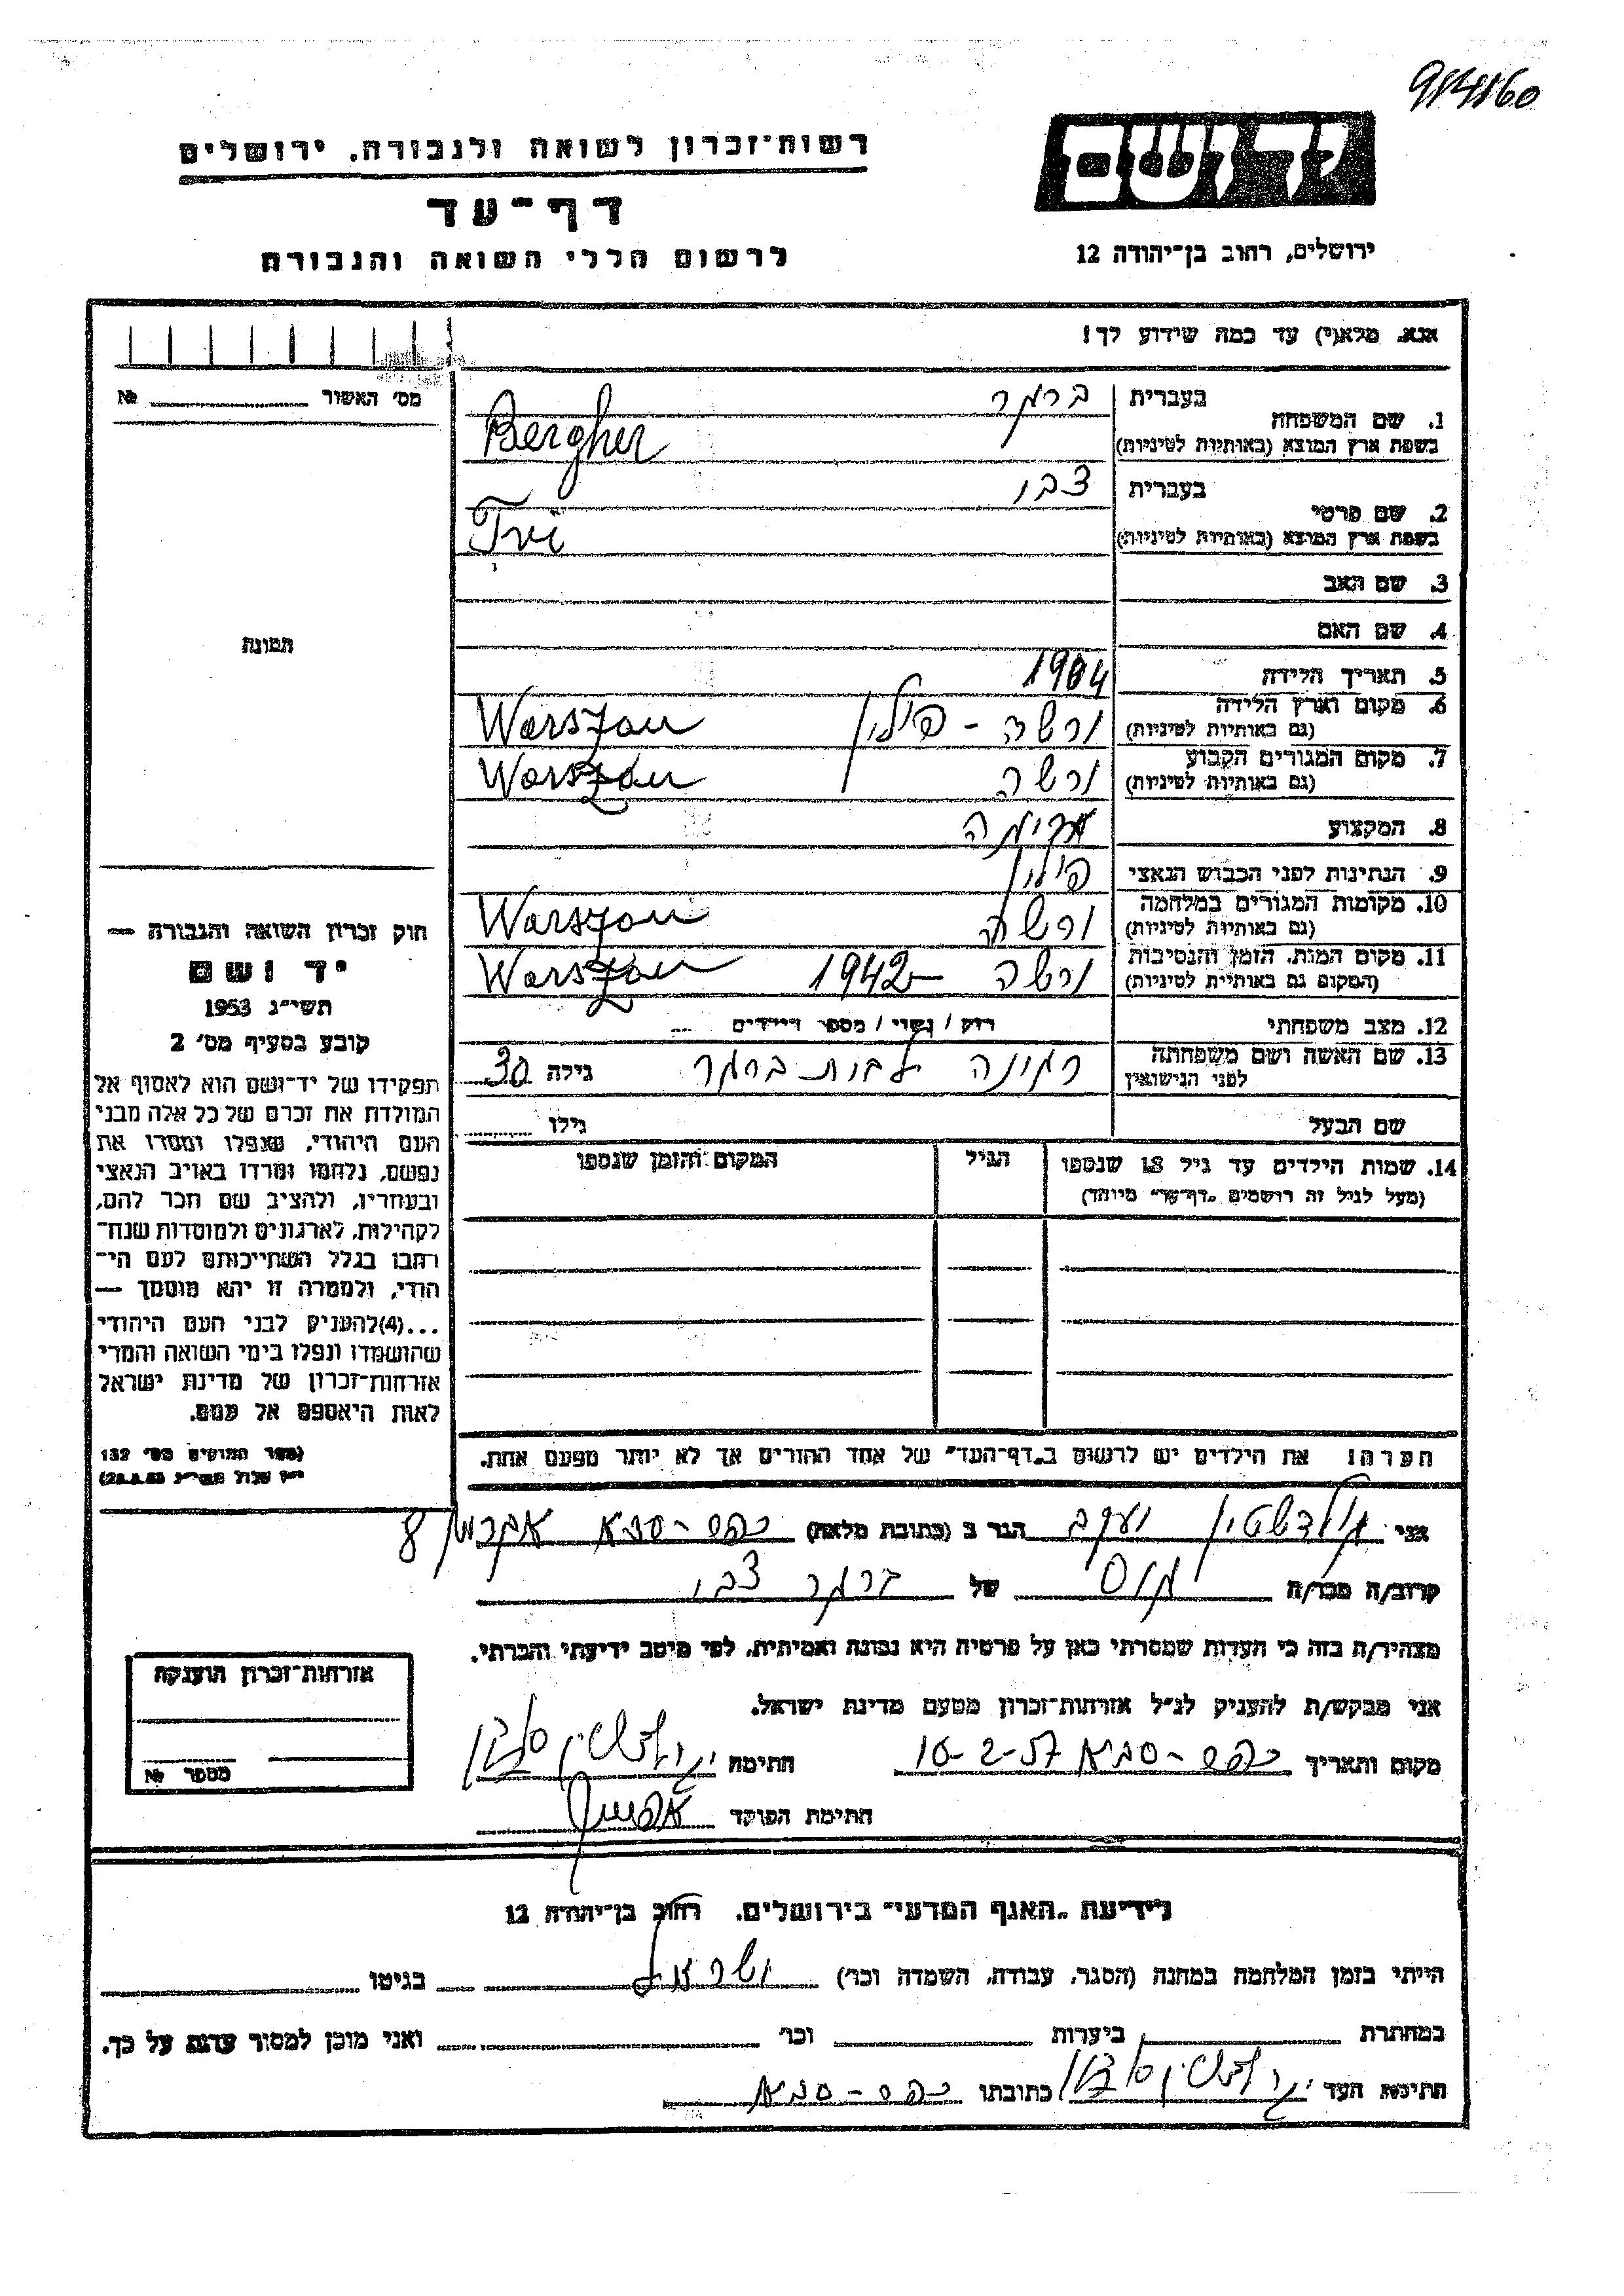 9/4/160
רשות־זכרון לשואה ולגבורה, ירושלים
דף־עד
לרשום חללי השואה והגבורה
יד ושם
ירושלים, רחוב בן־יהודה 12
אנא, מלא(י) עד כמה שידוע לך!
מס' האשור №
1. שם המשפחה
בעברית ברגר
בשפת ארץ המוצא (באותיות לטיניות) Bergher
2. שם פרטי
בעברית צבי
בשפת ארץ המוצא (באותיות לטיניות) Tvi
3. שם האב
4. שם האם
תמונה
5. תאריך הלידה 1904
6. מקום וארץ הלידה (גם באותיות לטיניות) ורשה - פולין Warszaw
7. מקום המגורים הקבוע (גם באותיות לטיניות) ורשה Warszaw
8. המקצוע
9. הנתינות לפני הכבוש הנאצי פולין
10. מקומות המגורים במלחמה (גם באותיות לטיניות) ורשה Warszaw
11. מקום המות, הזמן והנסיבות (המקום גם באותיות לטיניות) ורשה 1942 Warszaw
12. מצב משפחתי רוק / נשוי / מספר הילדים
13. שם האשה ושם משפחתה לפני הנישואין ברגר גילה 30
שם הבעל גילו
14. שמות הילדים עד גיל 18 שנספו (מעל לגיל זה רושמים „דף־עד" מיוחד)
הגיל
המקום והזמן שנספו
הערה! את הילדים יש לרשום ב„דף־העד" של אחד ההורים אך לא יותר מפעם אחת.
חוק זכרון השואה והגבורה —
יד ושם
תשי"ג 1953
קובע בסעיף מס' 2
תפקידו של יד־ושם הוא לאסוף אל
המולדת את זכרם של כל אלה מבני
העם היהודי, שנפלו ומסרו את
נפשם, נלחמו ומרדו באויב הנאצי
ובעוזריו, ולהציב שם וזכר להם,
לקהילות, לארגונים ולמוסדות שנח־
רבו בגלל השתייכותם לעם הי־
הודי, ולמטרה זו יהא מוסמך —
...(4)להעניק לבני העם היהודי
שהושמדו ונפלו בימי השואה והמרי
אזרחות־זכרון של מדינת ישראל
לאות היאספם אל עמם.
(ספר החוקים מס' 132
אני גולדשטיין יעקב הגר ב (כתובת מלאה) כפר-סבא 8
קרוב/ה מכר/ה גיס של ברגר צבי
מצהיר/ה בזה כי העדות שמסרתי כאן על פרטיה היא נכונה ואמיתית, לפי מיטב ידיעתי והכרתי.
אני מבקש/ת להעניק לנ"ל אזרחות־זכרון מטעם מדינת ישראל.
מקום ותאריך כפר-סבא 10-2-57 חתימה
חתימת הפוקד
אזרחות־זכרון הוענקה
מספר №
לידיעת „האגף המדעי" בירושלים, רחוב בן־יהודה 12
הייתי בזמן המלחמה במחנה (הסגר, עבודה, השמדה וכו') ישראל בגיטו
במחתרת ביערות וכו' ואני מוכן למסור עדות על כך.
חתימת העד כתובתו כפר-סבא